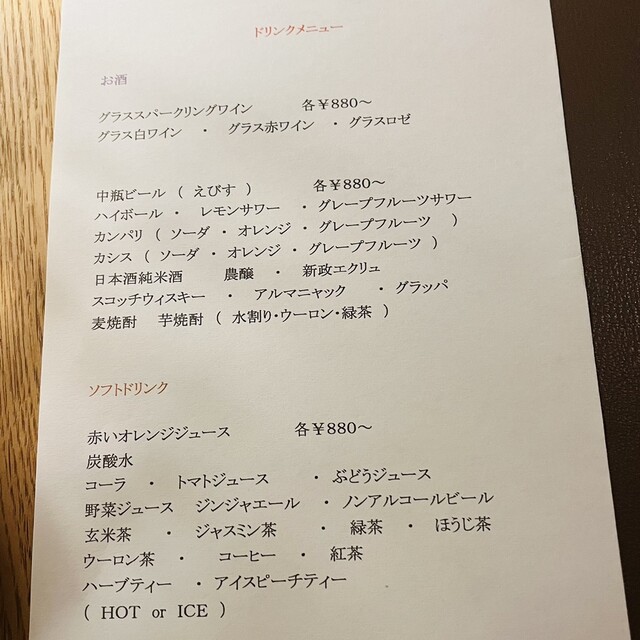 ドリンクメニュー
お酒
グラススパークリングワイン 各￥880～
グラス白ワイン ・ グラス赤ワイン ・ グラスロゼ
中瓶ビール ( えびす ) 各￥880～
ハイボール ・ レモンサワー ・ グレープフルーツサワー
カンパリ ( ソーダ ・ オレンジ ・ グレープフルーツ )
カシス ( ソーダ ・ オレンジ ・ グレープフルーツ )
日本酒純米酒 農醸 ・ 新政エクリュ
スコッチウィスキー ・ アルマニャック ・ グラッパ
麦焼酎 芋焼酎 ( 水割り・ウーロン・緑茶 )
ソフトドリンク
赤いオレンジジュース 各￥880～
炭酸水
コーラ ・ トマトジュース ・ ぶどうジュース
野菜ジュース ジンジャエール ・ ノンアルコールビール
玄米茶 ・ ジャスミン茶 ・ 緑茶 ・ ほうじ茶
ウーロン茶 ・ コーヒー ・ 紅茶
ハーブティー ・ アイスピーチティー
( HOT or ICE )